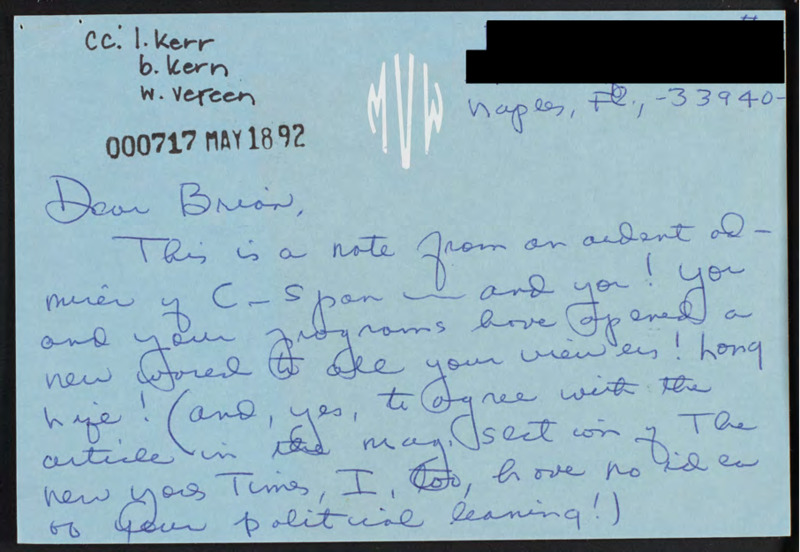 cc: l. kerr
b. kern
w. vereen
000717 MAY 18 92
MVW
Naples, Fl., -33940-
Dear Brian,
This is a note from an ardent ad-
mirer of C-Span — and you! You
and your programs have opened a
new world to all your viewers! Long
life! (and, yes, to agree with the
article in the mag. section of The
New York Times, I, too, have no idea
of your political leaning!)